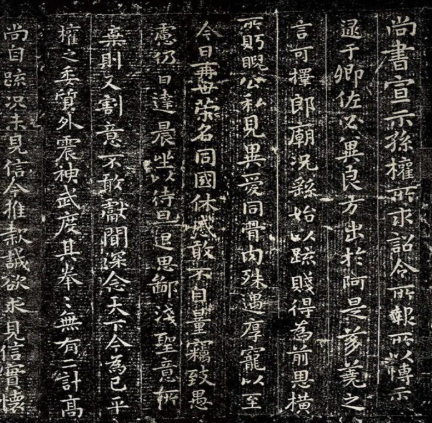 尚書宣示孫權所求詔令所報所以博示
逮于卿佐必冀良方出於阿是芻蕘之
言可擇郎廟況繇始以疏賤得為前恩橫
所眄睨公私見異愛同骨肉殊遇厚寵以至
今日再世榮名同國休慼敢不自量竊致愚
慮仍日達晨坐以待旦退思鄙淺聖意所
棄則又割意不敢獻聞深念天下今為已平
權之委質外震神武度其拳々無有二計高
尚自疏況未見信今推款誠欲求見信實懷